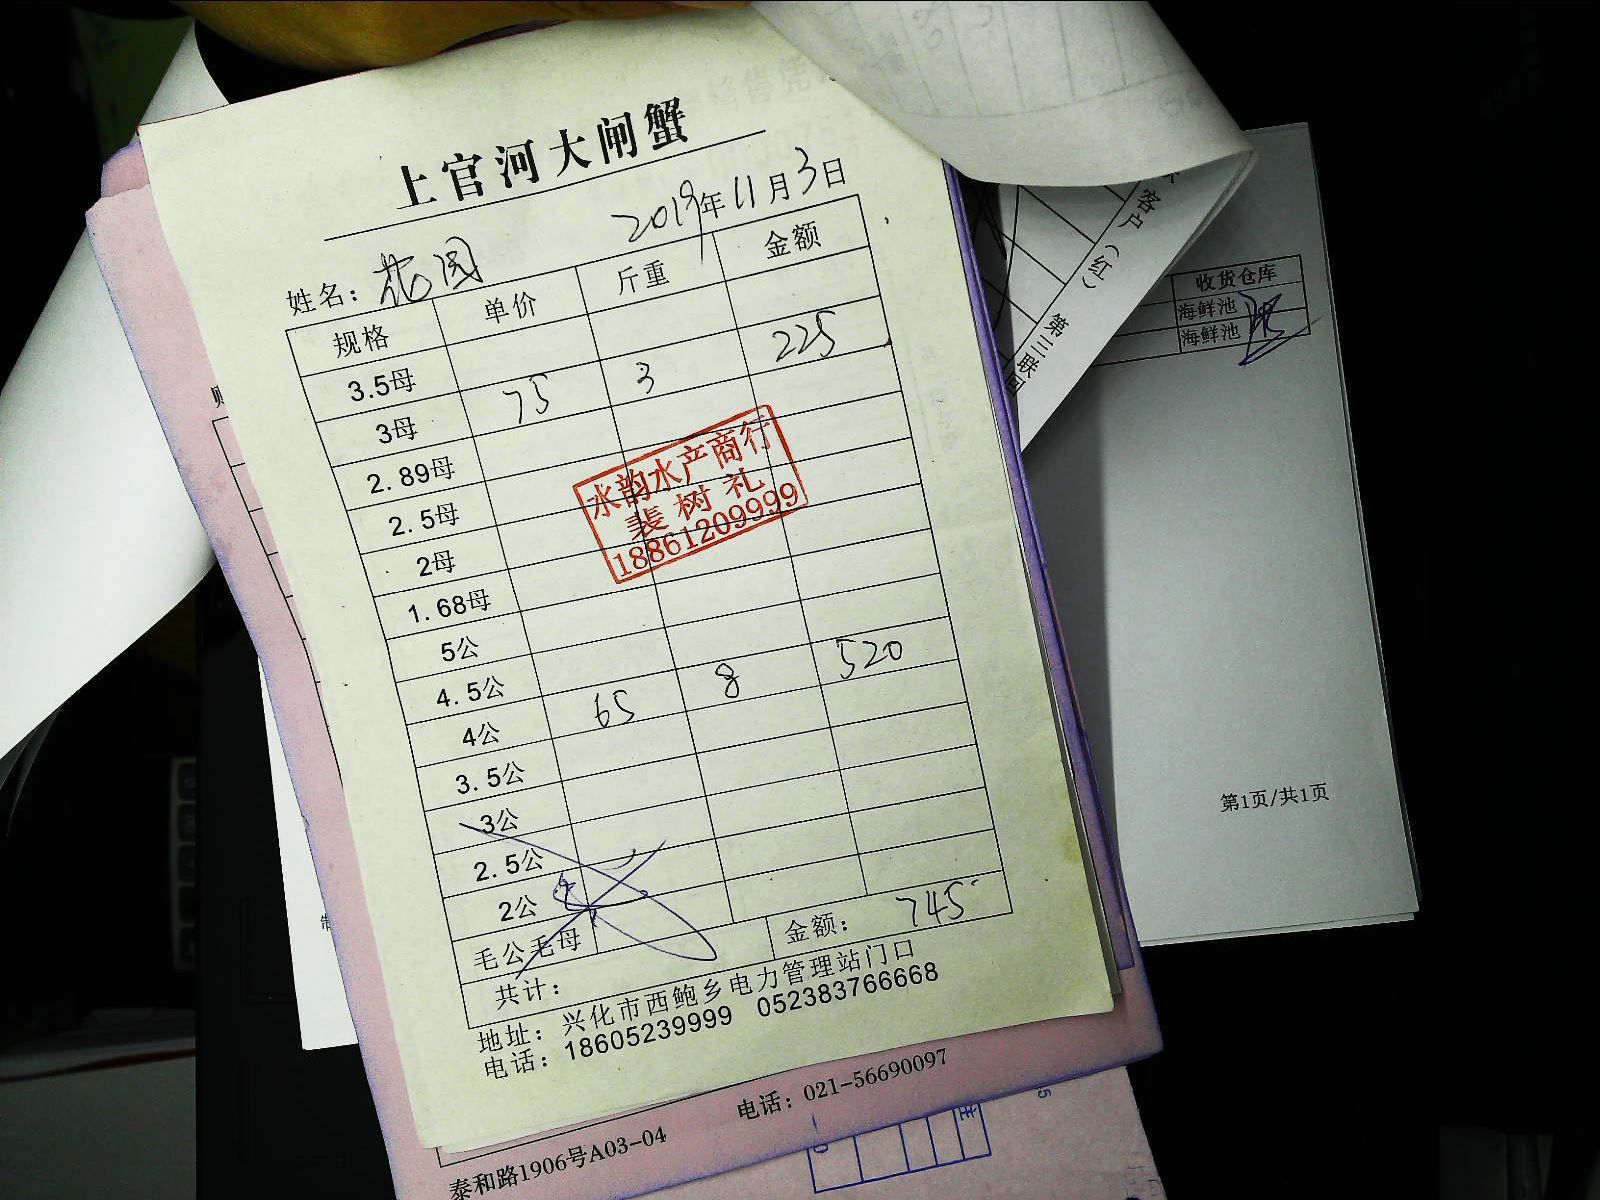 上官河大闸蟹
2019年11月3日
姓名：花园
规格 单价 斤重 金额
3.5母
3母 75 3 225
2.89母
2.5母
2母
1.68母
5公
4.5公
4公 65 8 520
3.5公
3公
2.5公
2公
毛公毛母
共计： 金额： 745
地址：兴化市西鲍乡电力管理站门口
电话：18605239999 052383766668
水韵水产商行
裴树礼
18861209999
客户（红） 第三联
收货仓库
海鲜池
海鲜池
第1页/共1页
电话：021-56690097
泰和路1906号A03-04